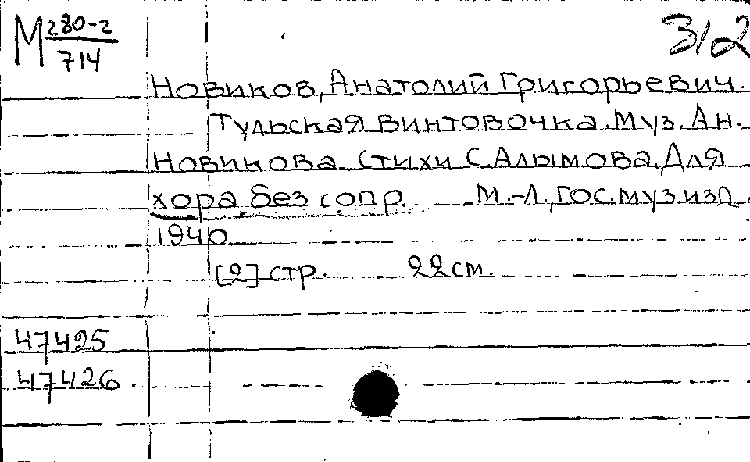 М 280-2 312
714
Новиков, Анатолий Григорьевич.
Тульская винтовочка. Муз. Ан.
Новикова. Стихи С. Алымова. Для
хора без сопр. М.-Л., Гос. муз. изд.
1940
[2] стр. 22 см.
47425
47426